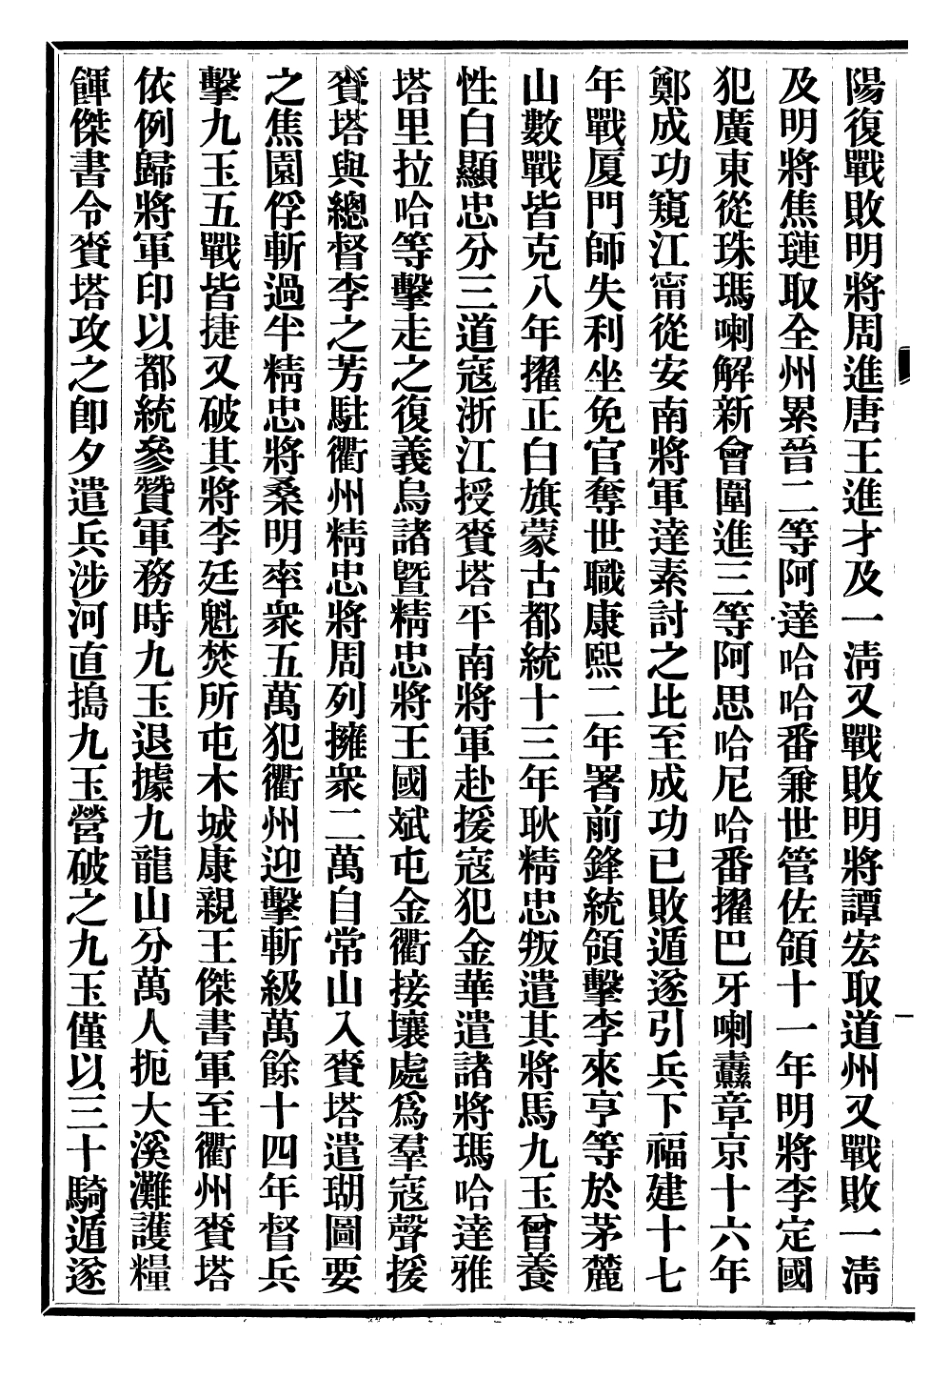 陽復戰敗明將周進唐王進才及一清又戰敗明將譚宏取道州又戰敗一清
及明將焦璉取全州累晉二等阿達哈哈番兼世管佐領十一年明將李定國
犯廣東從珠瑪喇解新會圍進三等阿思哈尼哈番擢巴牙喇纛章京十六年
鄭成功窺江甯從安南將軍達素討之比至成功已敗遁遂引兵下福建十七
年戰厦門師失利坐免官奪世職康熙二年署前鋒統領擊李來亨等於茅麓
山數戰皆克八年擢正白旗蒙古都統十三年耿精忠叛遣其將馬九玉曾養
性白顯忠分三道寇浙江授賚塔平南將軍赴援寇犯金華遣諸將瑪哈達雅
塔里拉哈等擊走之復義烏諸曁精忠將王國斌屯金衢接壤處爲羣寇聲援
賚塔與總督李之芳駐衢州精忠將周列擁衆二萬自常山入賚塔遣瑚圖要
之焦園俘斬過半精忠將桑明率衆五萬犯衢州迎擊斬級萬餘十四年督兵
擊九玉五戰皆捷又破其將李廷魁焚所屯木城康親王傑書軍至衢州賚塔
依例歸將軍印以都統參贊軍務時九玉退據九龍山分萬人扼大溪灘護糧
餫傑書令賚塔攻之卽夕遣兵涉河直搗九玉營破之九玉僅以三十騎遁遂
一